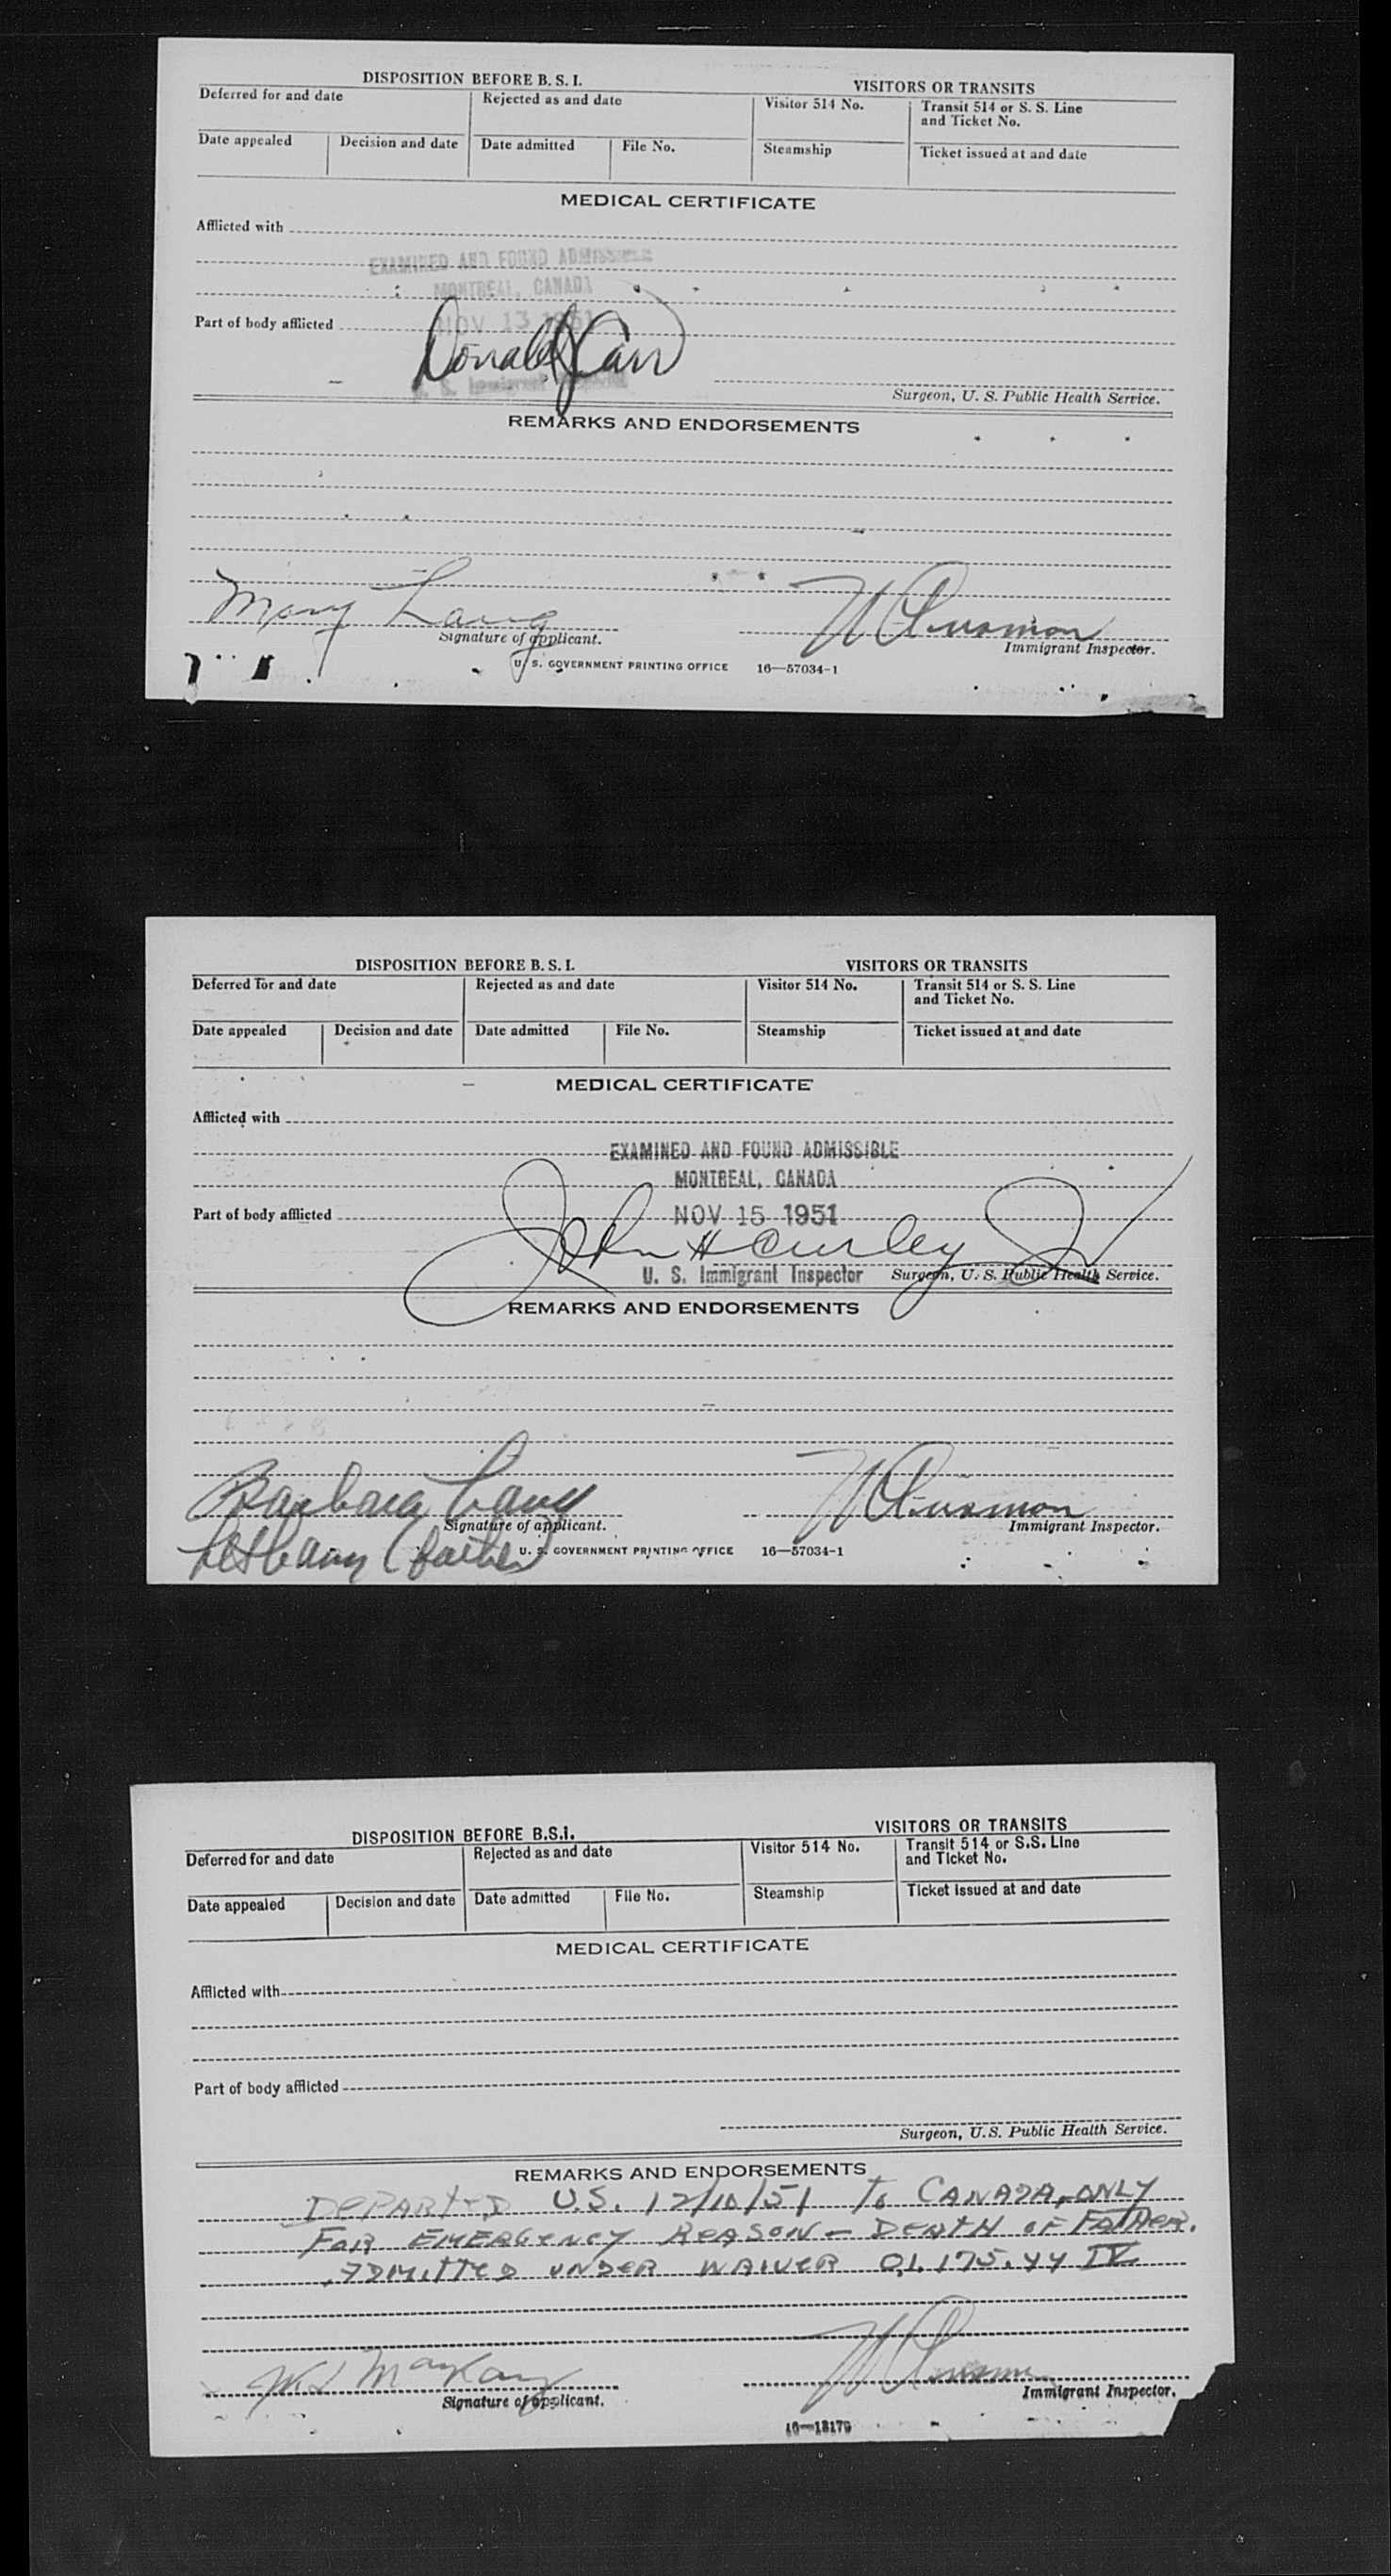 DISPOSITION BEFORE B. S. I.
VISITORS OR TRANSITS
Deferred for and date
Rejected as and date
Visitor 514 No.
Transit 514 or S. S. Line
and Ticket No.
Date appealed
Decision and date
Date admitted
File No.
Steamship
Ticket issued at and date
MEDICAL CERTIFICATE
Afflicted with
EXAMINED AND FOUND ADMISSIBLE
MONTREAL, CANADA
Part of body afflicted
NOV 13 1951
Donald J Carr
U. S. Immigrant Inspector
Surgeon, U. S. Public Health Service.
REMARKS AND ENDORSEMENTS
Mary Lang
Signature of applicant.
Immigrant Inspector.
U. S. GOVERNMENT PRINTING OFFICE 16—57034-1
DISPOSITION BEFORE B. S. I.
VISITORS OR TRANSITS
Deferred for and date
Rejected as and date
Visitor 514 No.
Transit 514 or S. S. Line
and Ticket No.
Date appealed
Decision and date
Date admitted
File No.
Steamship
Ticket issued at and date
MEDICAL CERTIFICATE
Afflicted with
EXAMINED AND FOUND ADMISSIBLE
MONTREAL, CANADA
Part of body afflicted
NOV 15 1951
John H Curley Jr
U. S. Immigrant Inspector
Surgeon, U. S. Public Health Service.
REMARKS AND ENDORSEMENTS
Barbara
Signature of applicant.
Immigrant Inspector.
(father)
U. S. GOVERNMENT PRINTING OFFICE 16—57034-1
DISPOSITION BEFORE B.S.I.
VISITORS OR TRANSITS
Deferred for and date
Rejected as and date
Visitor 514 No.
Transit 514 or S.S. Line
and Ticket No.
Date appealed
Decision and date
Date admitted
File No.
Steamship
Ticket issued at and date
MEDICAL CERTIFICATE
Afflicted with
Part of body afflicted
Surgeon, U.S. Public Health Service.
REMARKS AND ENDORSEMENTS
DEPARTED U.S. 12/10/51 TO CANADA, ONLY
FOR EMERGENCY REASON — DEATH OF FATHER.
ADMITTED UNDER WAIVER 0,1.175.44 IV
Signature of applicant.
Immigrant Inspector.
16—13179